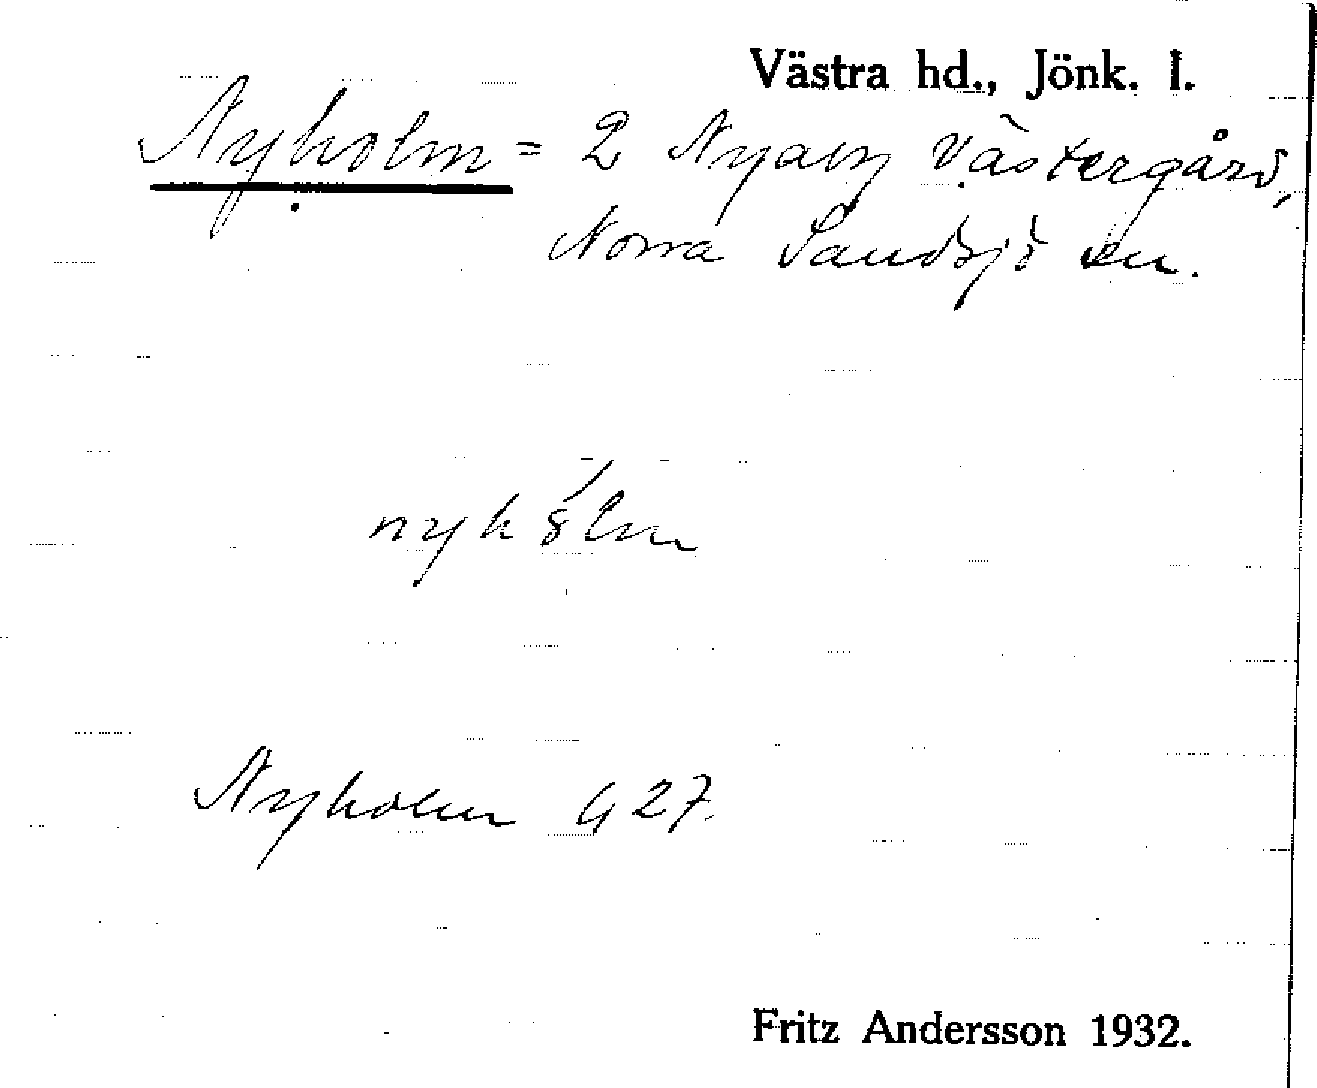 Västra hd., Jönk. l.
Nyholm = 2 Nyaby Västergård,
Norra Sandsjö sn.
nyhólm
Nyholm G 27.
Fritz Andersson 1932.